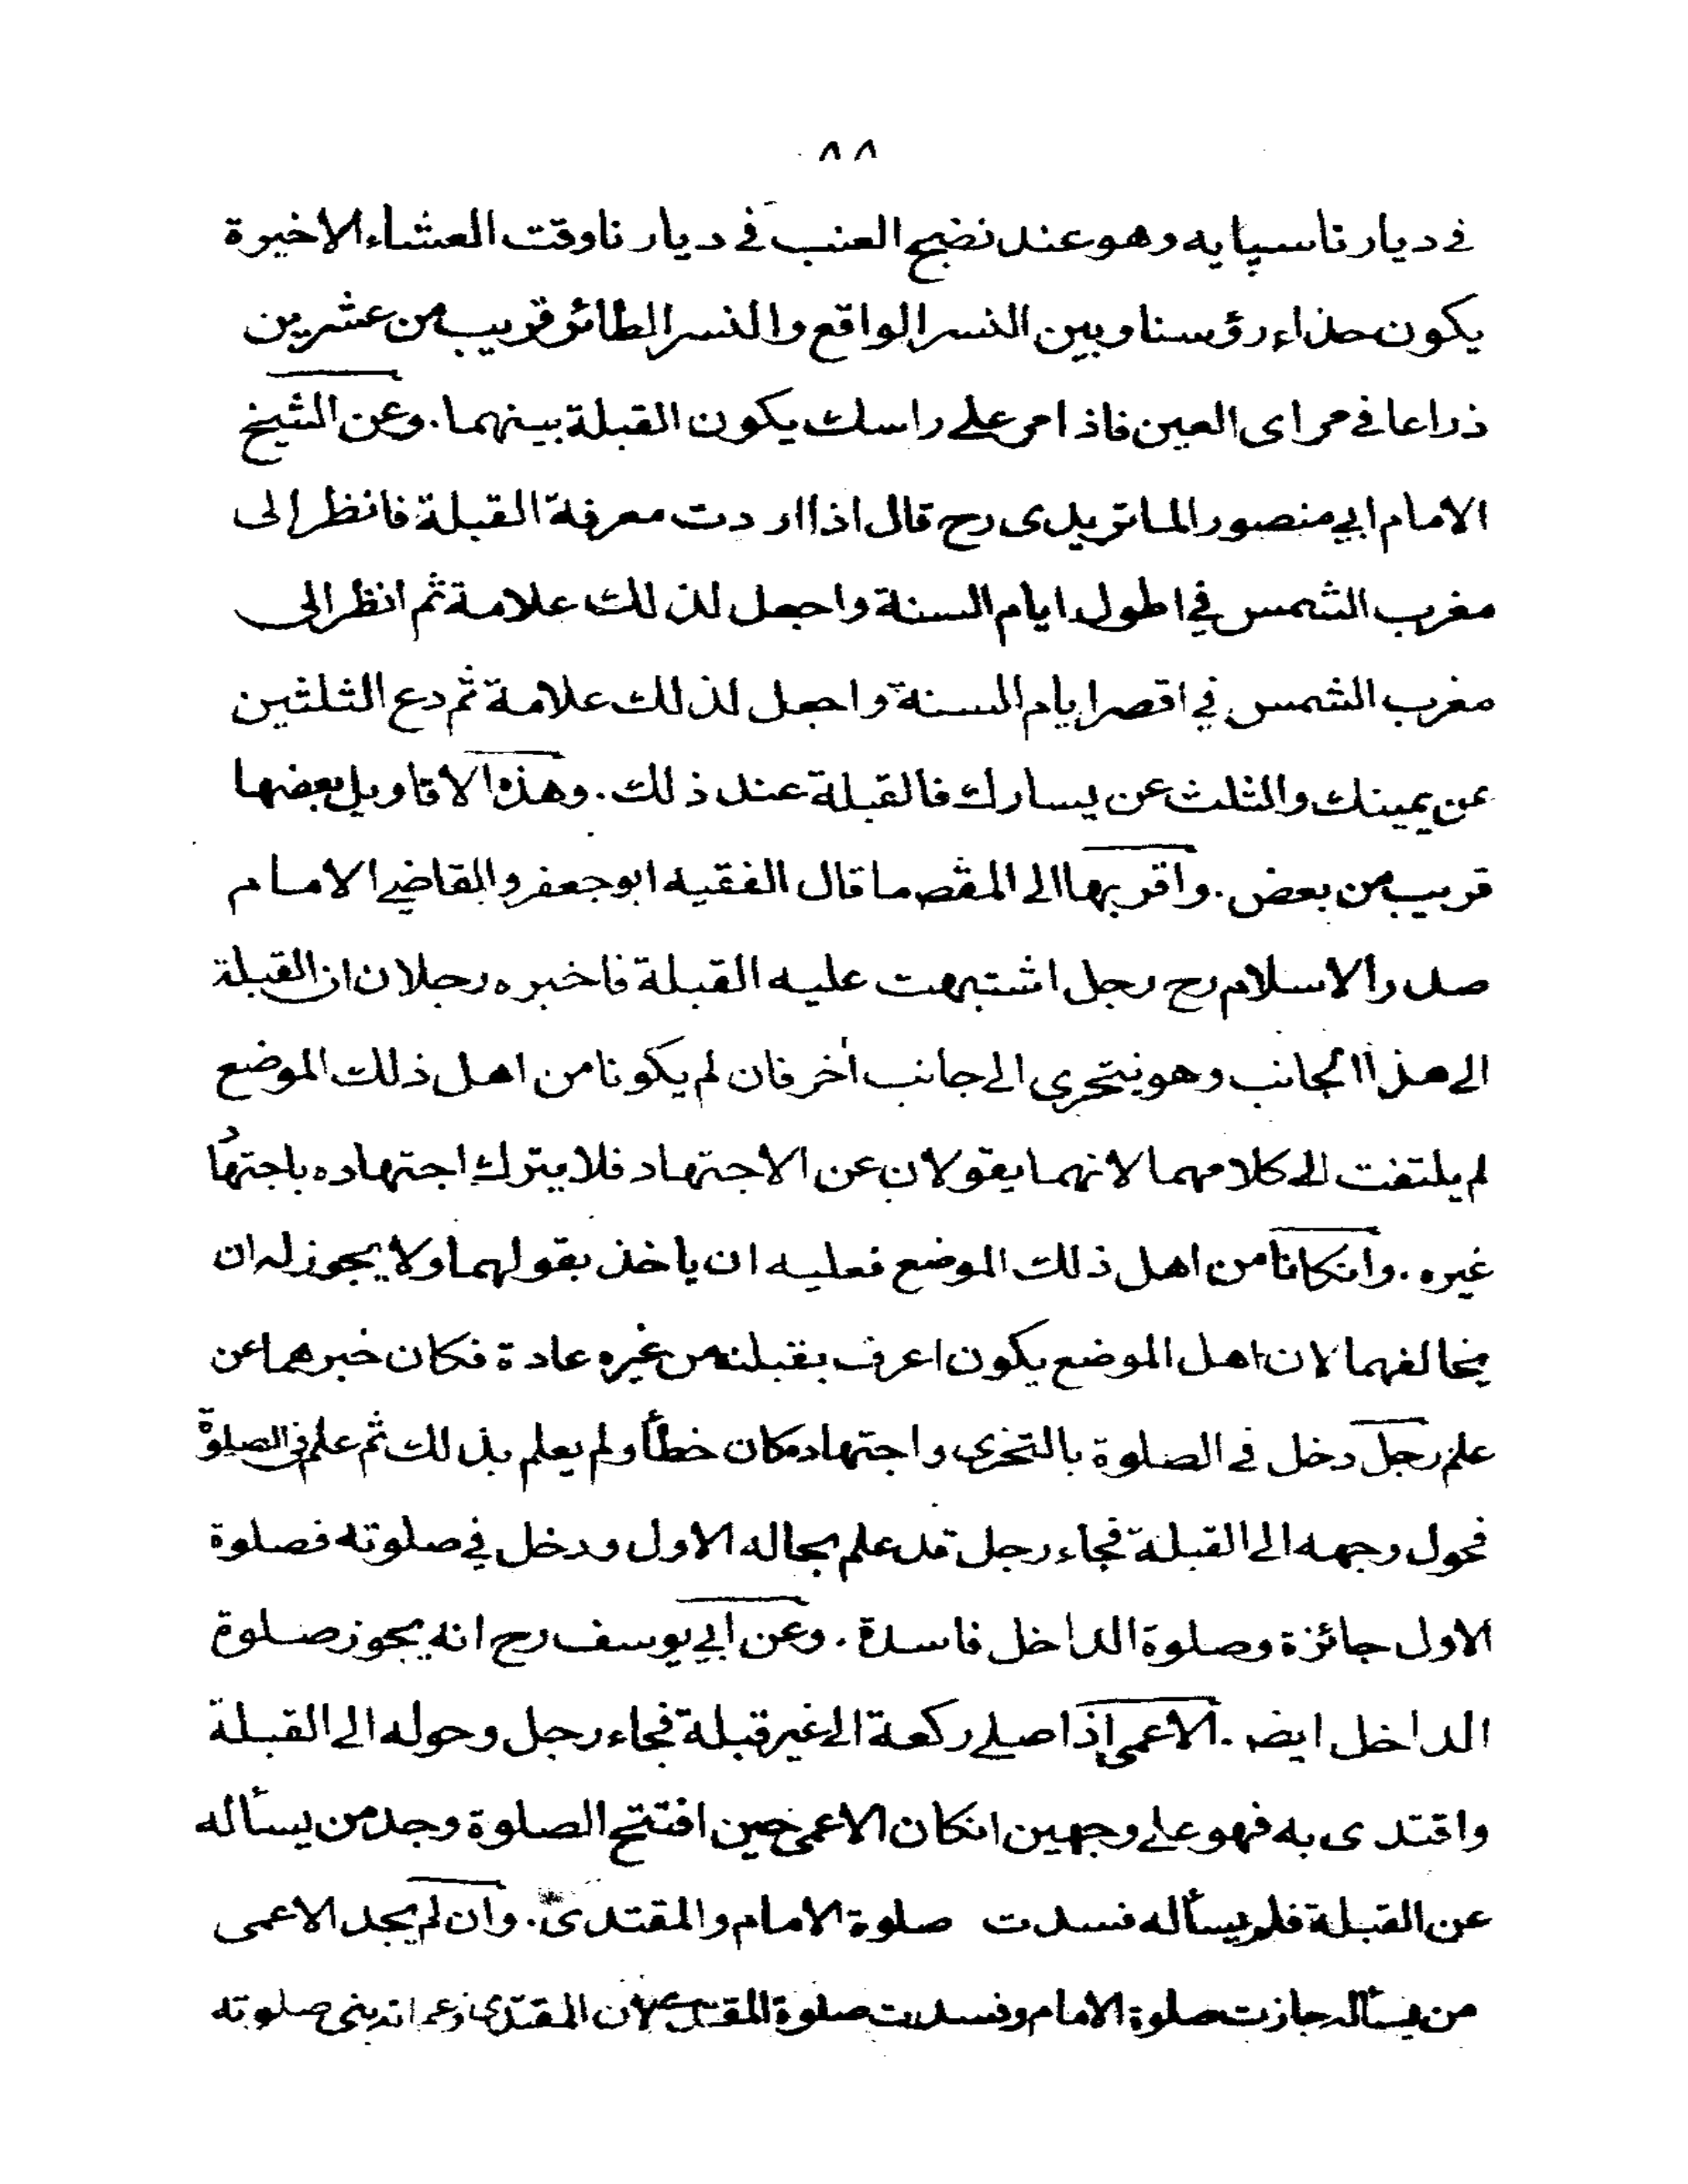 ٨٨
في ديارنا سپايه وهو عند نضج العنب في ديارنا وقت العشاء الاخيرة
يكون حذاء رؤسنا وبين النسر الواقع والنسر الطائر قريب من عشرين
ذراعا في مراى العين فاذا مر على راسك يكون القبلة بينهما. وعن الشيخ
الامام ابي منصور الماتريدى رح قال اذا اردت معرفة القبلة فانظر الى
مغرب الشمس في اطول ايام السنة واجعل لذلك علامة ثم انظر الى
مغرب الشمس في اقصر ايام السنة واجعل لذلك علامة ثم دع الثلثين
عن يمينك والثلث عن يسارك فالقبلة عند ذلك. وهذه الاقاويل بعضها
قريب من بعض. واقربها الى المقص ما قال الفقيه ابو جعفر والقاضي الامام
صدر الاسلام رح رجل اشتبهت عليه القبلة فاخبره رجلان ان القبلة
الى هذا الجانب وهو يتحرى الى جانب اخر فان لم يكونا من اهل ذلك الموضع
لم يلتفت الى كلامهما لانهما يقولان عن الاجتهاد فلا يترك اجتهاده باجتهاد
غيره. وانكانا من اهل ذلك الموضع فعليه ان ياخذ بقولهما ولا يجوز له ان
يخالفهما لان اهل الموضع يكون اعرف بقبلته من غيره عادة فكان خبرهما عن
علم رجل دخل في الصلوة بالتحرى واجتهاد فكان خطأ ولم يعلم بذلك ثم علم في الصلوة
فحول وجهه الى القبلة فجاء رجل قد علم بحاله الاول ودخل في صلوته فصلوة
الاول جائزة وصلوة الداخل فاسدة. وعن ابي يوسف رح انه يجوز صلوة
الداخل ايض. الاعمى اذا صلى ركعة الى غير قبلة فجاء رجل وحوله الى القبلة
واقتدى به فهو على وجهين انكان الاعمى حين افتتح الصلوة وجد من يسأله
عن القبلة فلم يسأله فسدت صلوة الامام والمقتدى. وان لم يجد الاعمى
من يسأله جازت صلوة الامام وفسدت صلوة المقتدى لان المقتدى زعم انه بنى صلوته